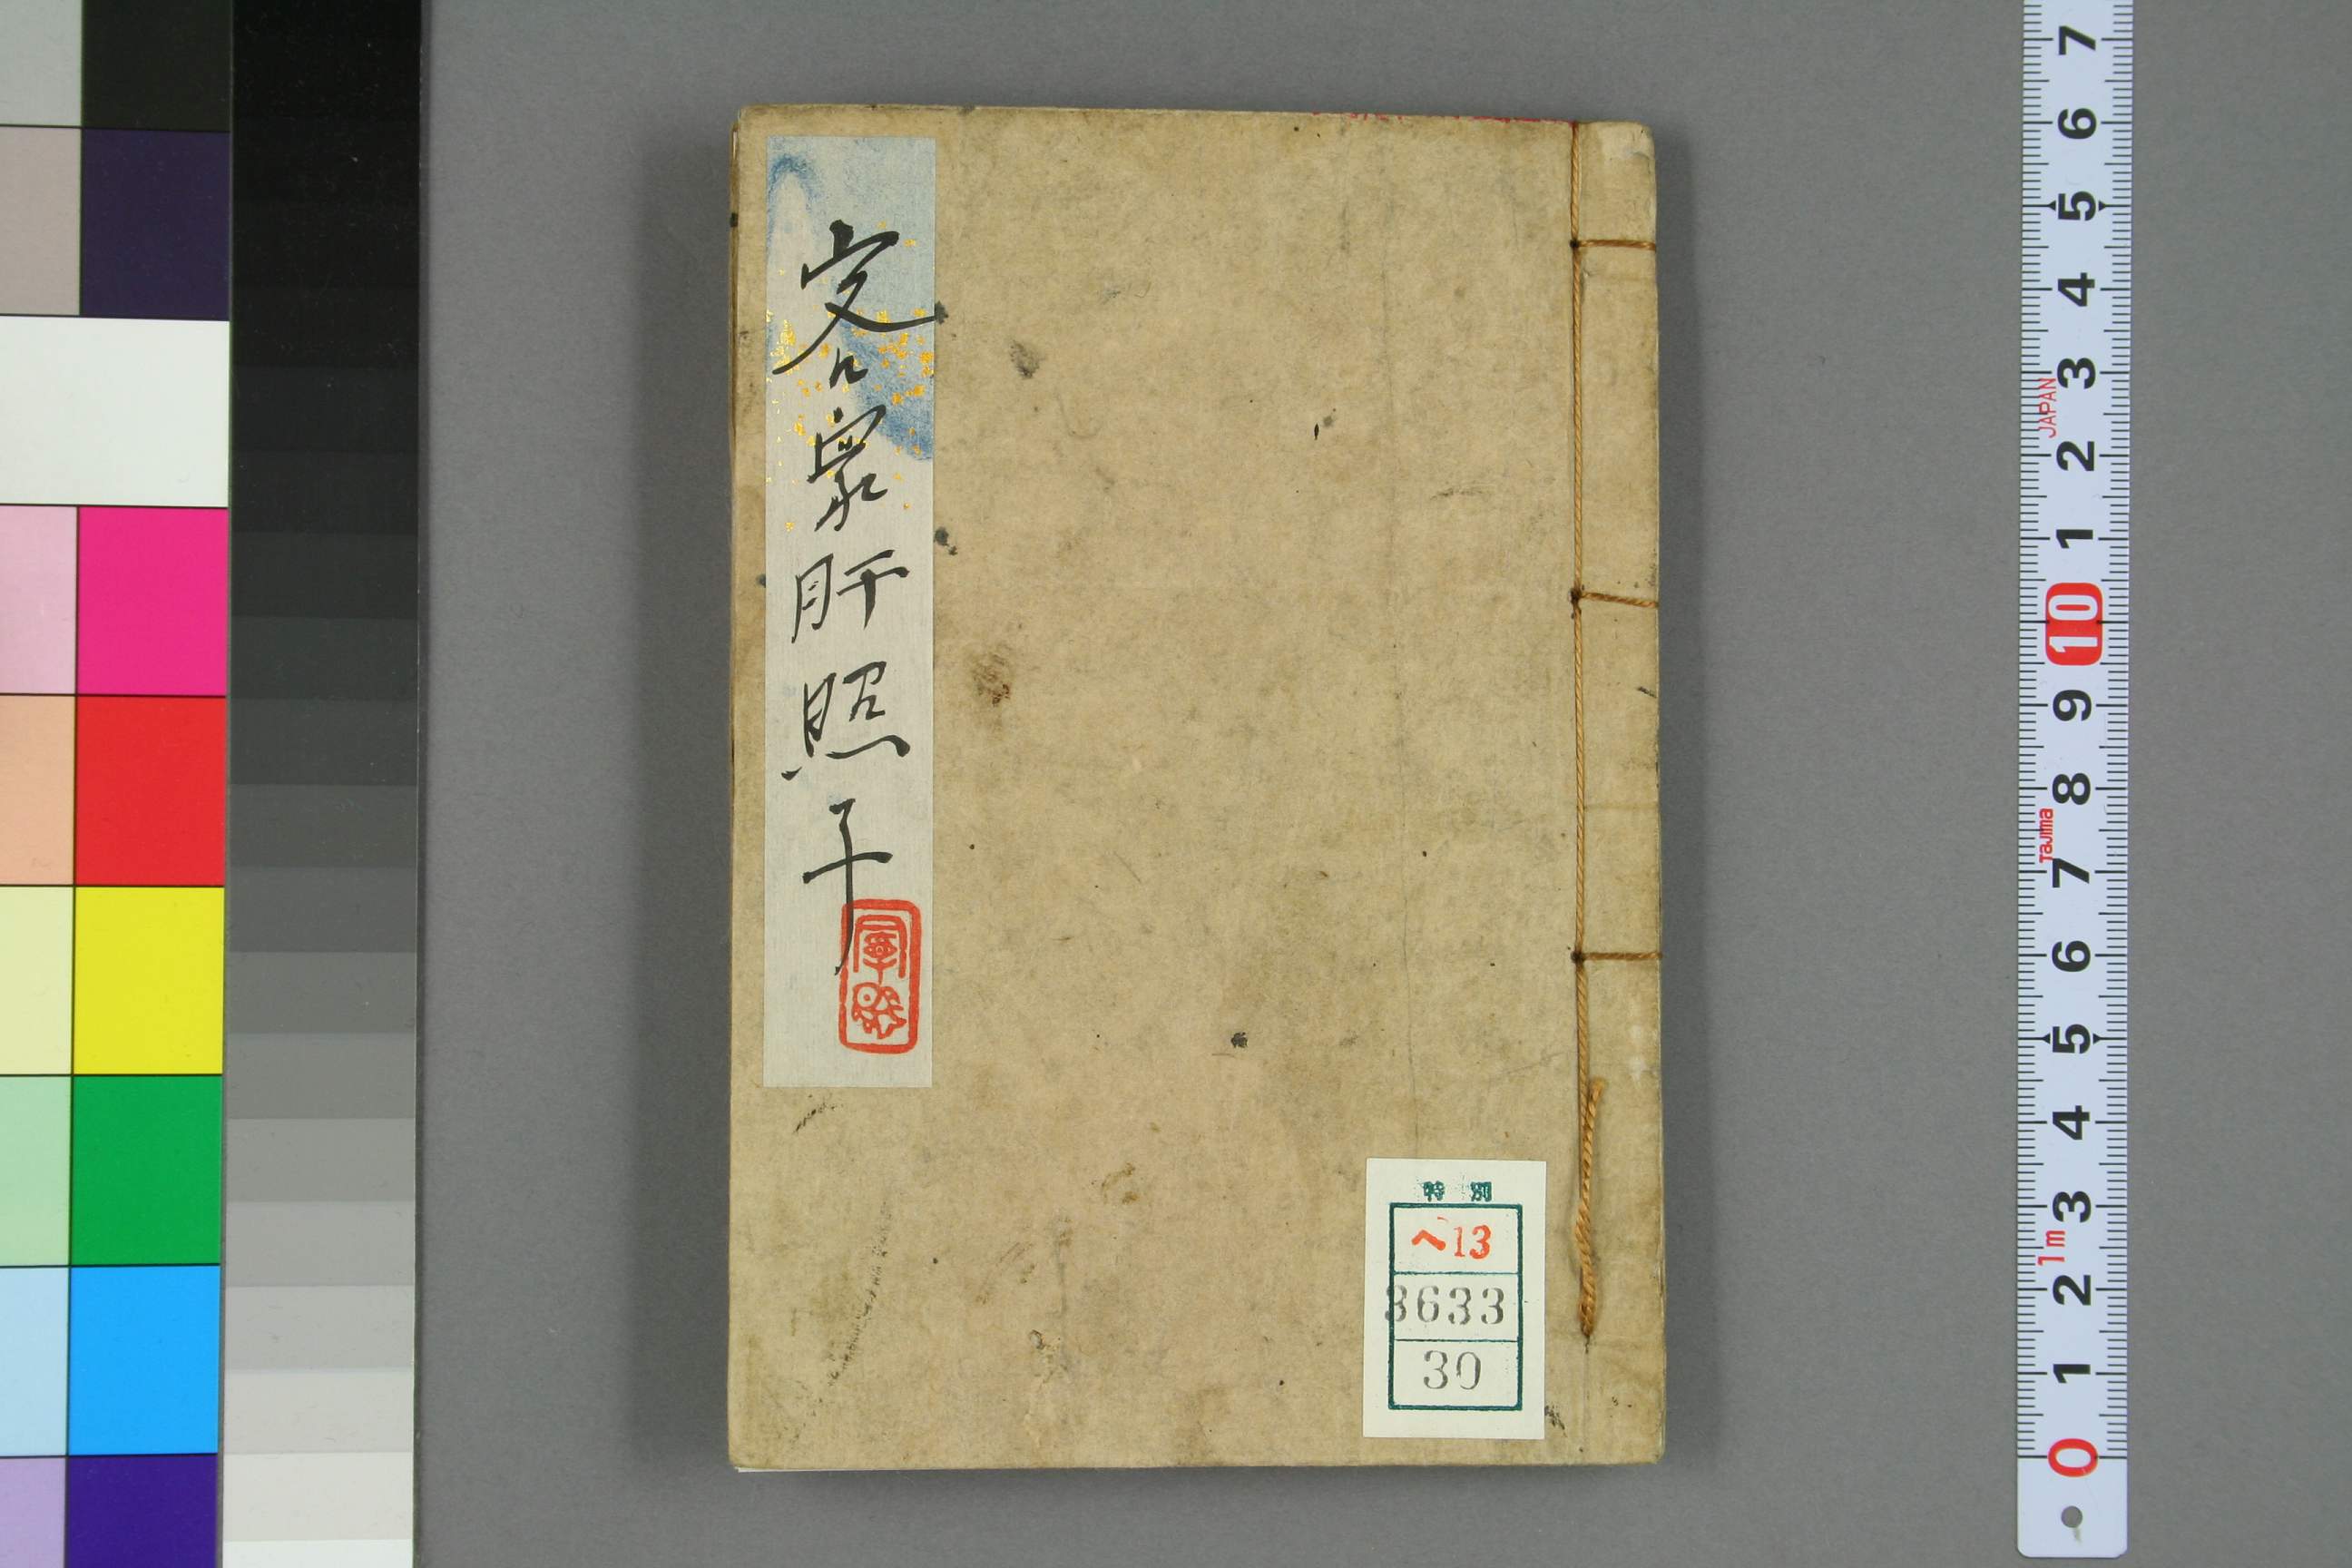 客衆肝照子
特別
へ13
3633
30
7
6
5
4
3
JAPAN
2
1
10
9
8
Tajima
7
6
5
4
3
1m
2
1
0